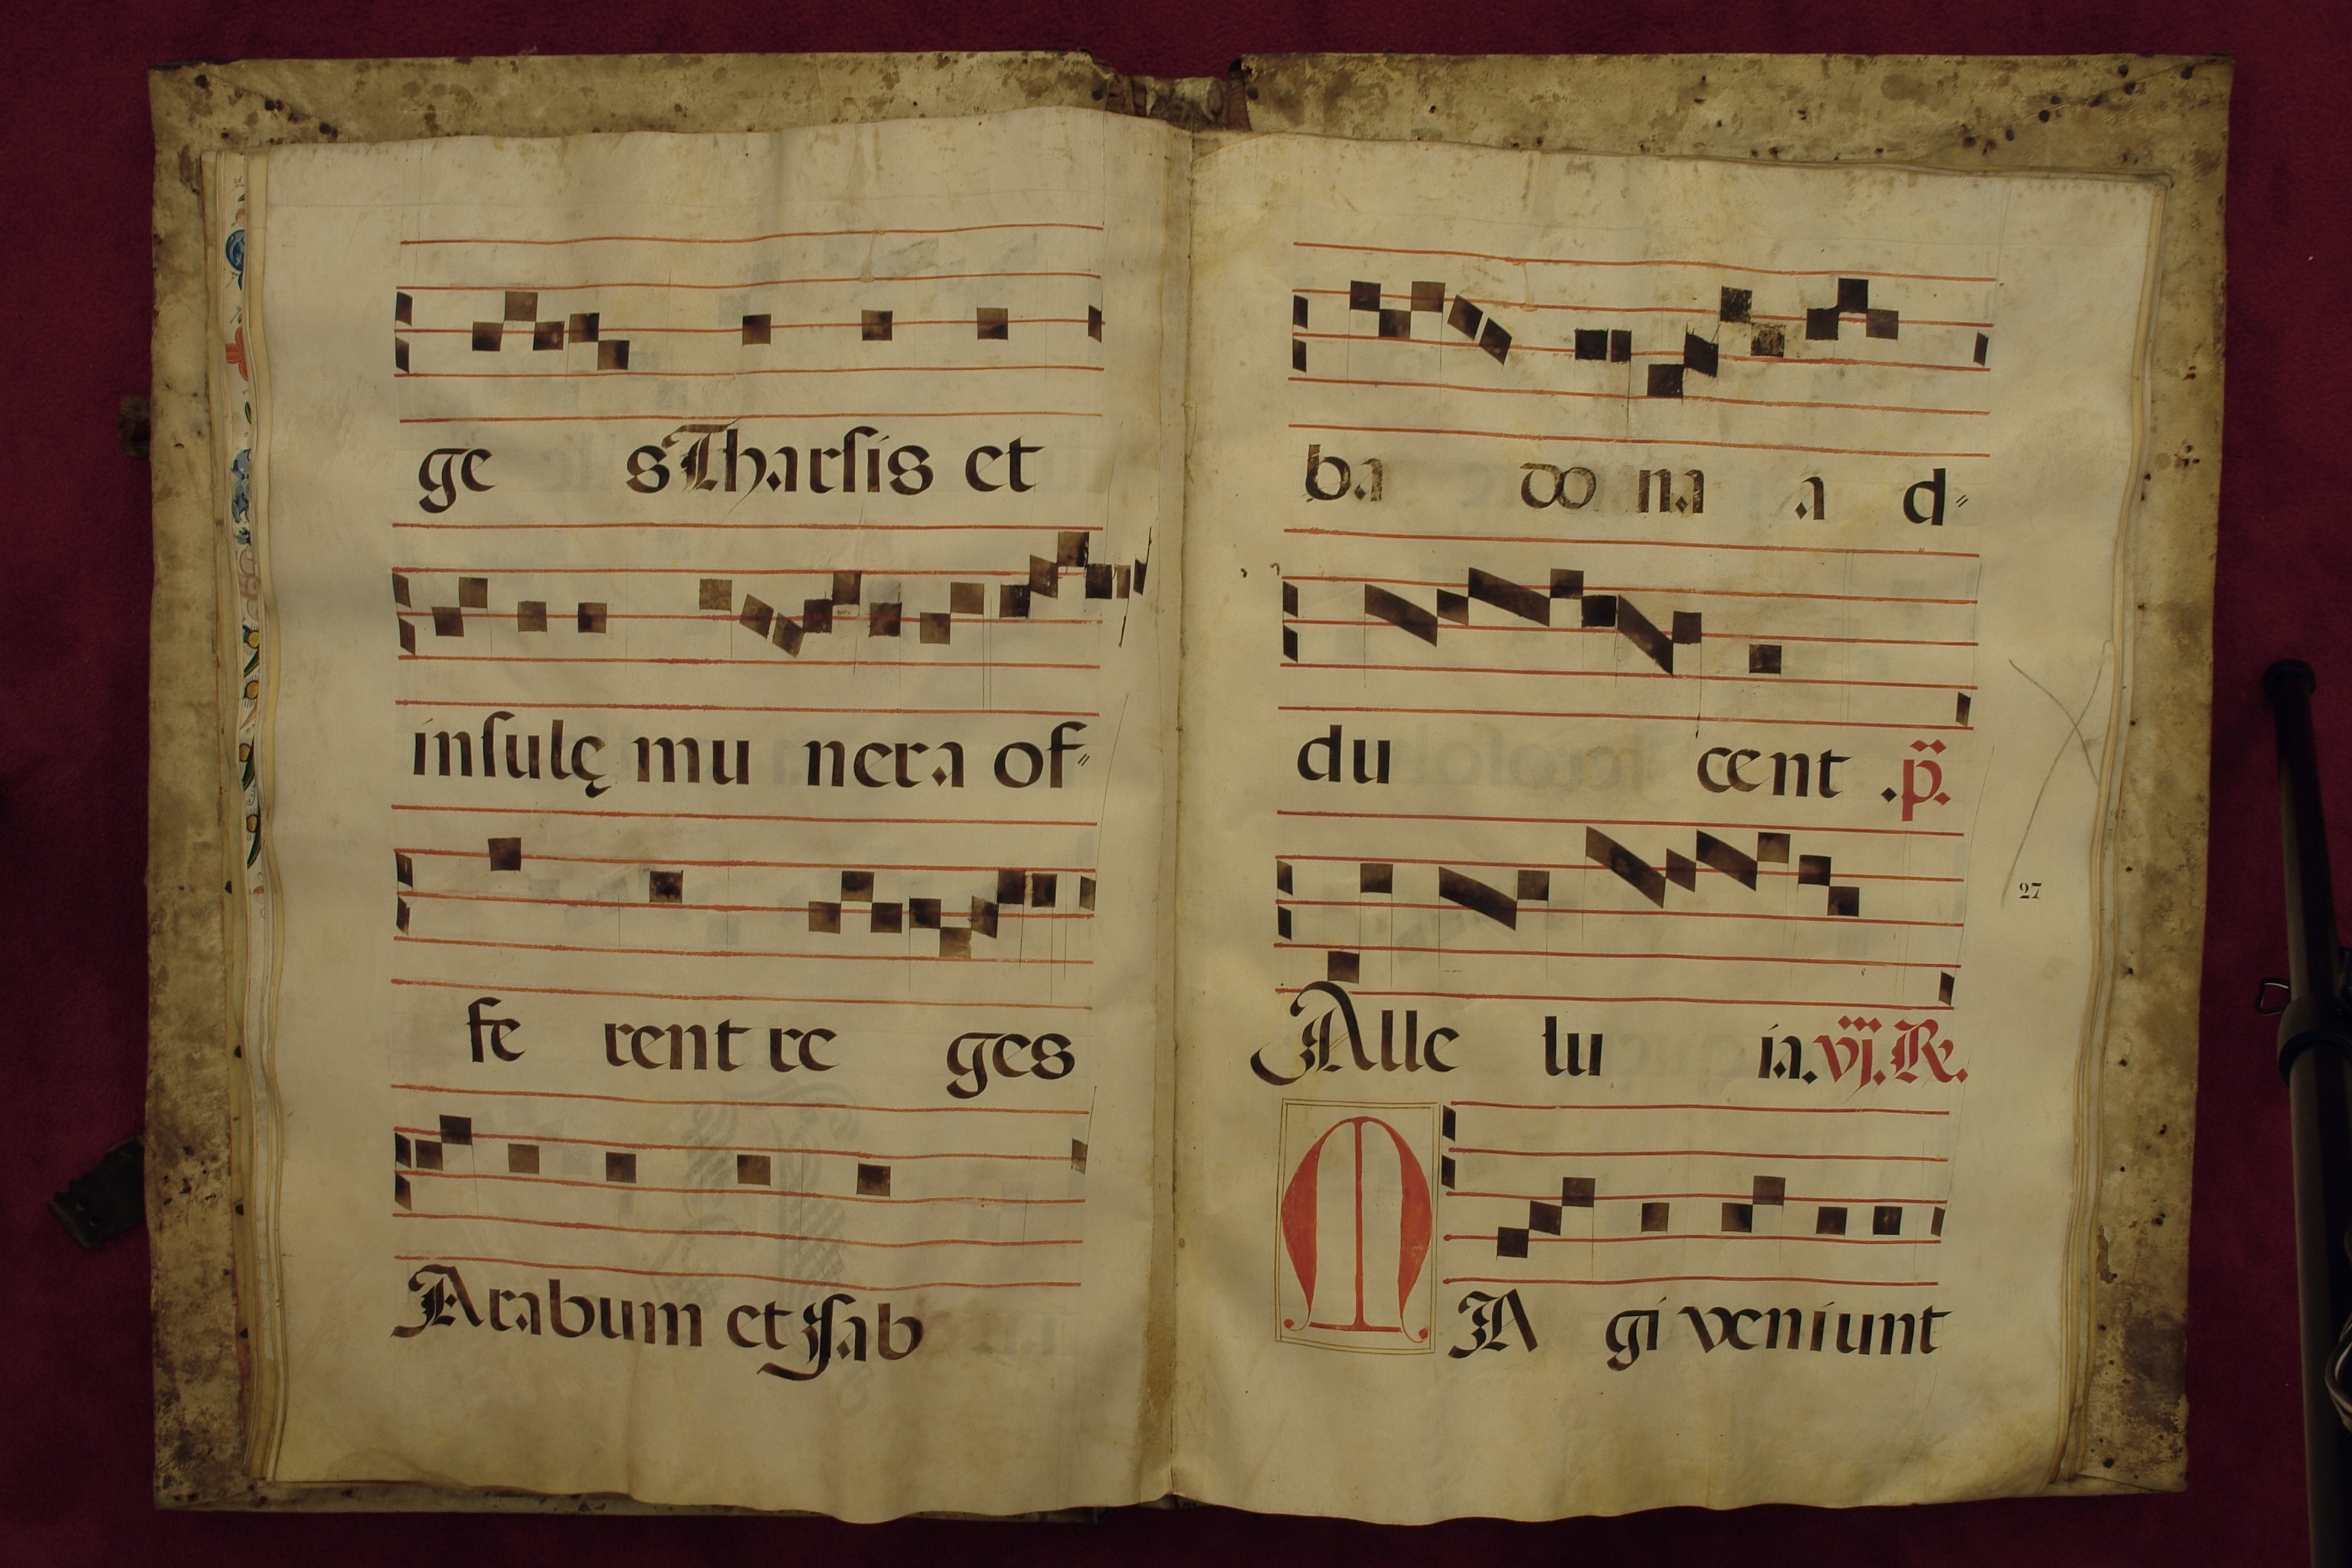 ge s Tharsis et
insulę mu nera of=
fe rent re ges
Arabum et Sab
ba do na a d=
du cent .p̈.
Alle lu ia. vij. R.
27
MA gi veniunt